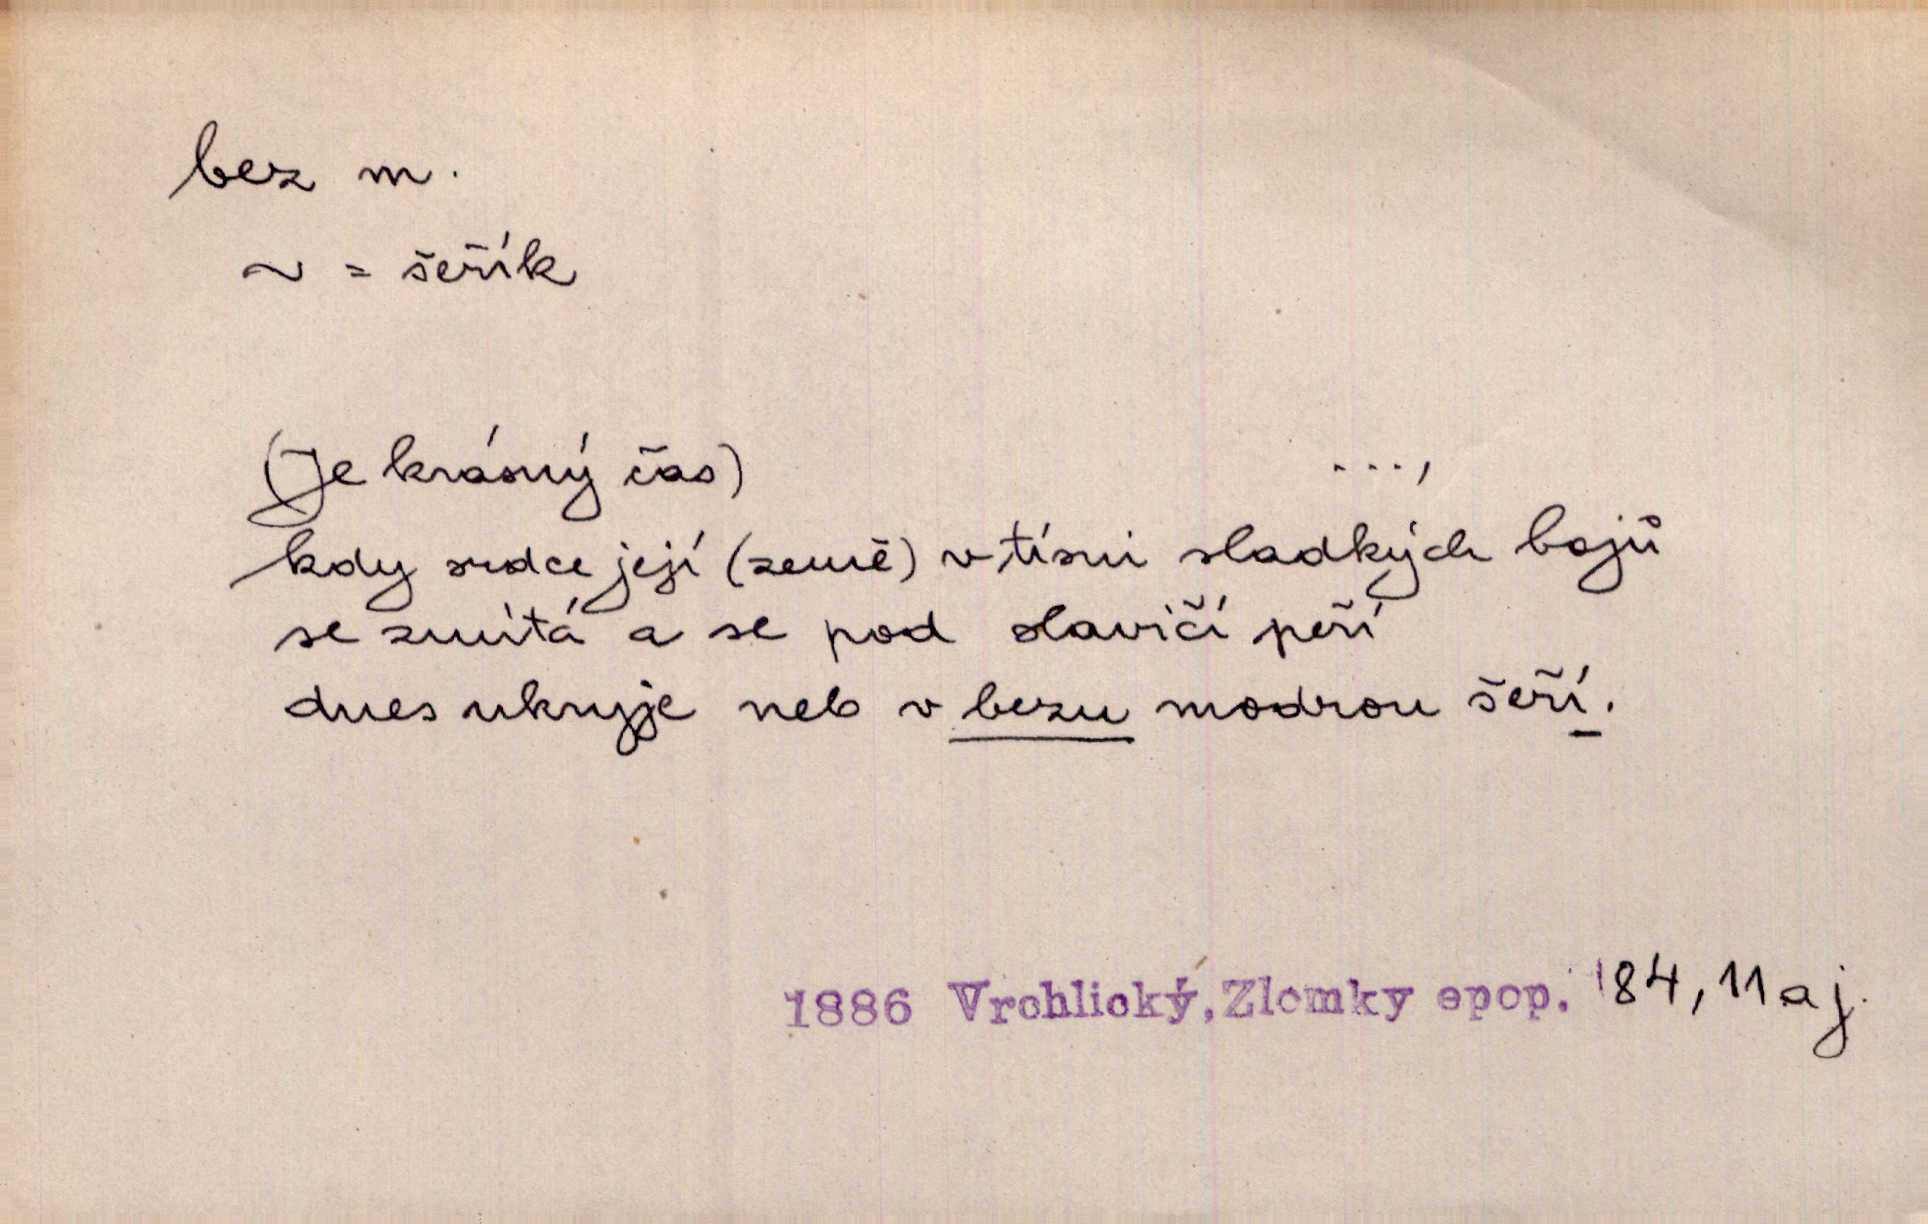 bez m.
~ = šeřík
(Je krásný čas) ...,
kdy srdce její (země) v tísni sladkých bojů
se zmítá a se pod slavičí peří
dnes ukryje neb v bezu modrou šeří.
1886 Vrchlický, Zlomky epop. '84, 11 a j.